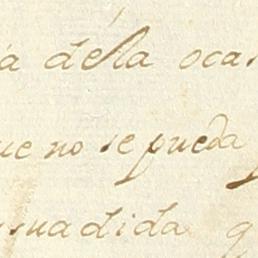 a dela ocas
ue no se pueda
suadida q